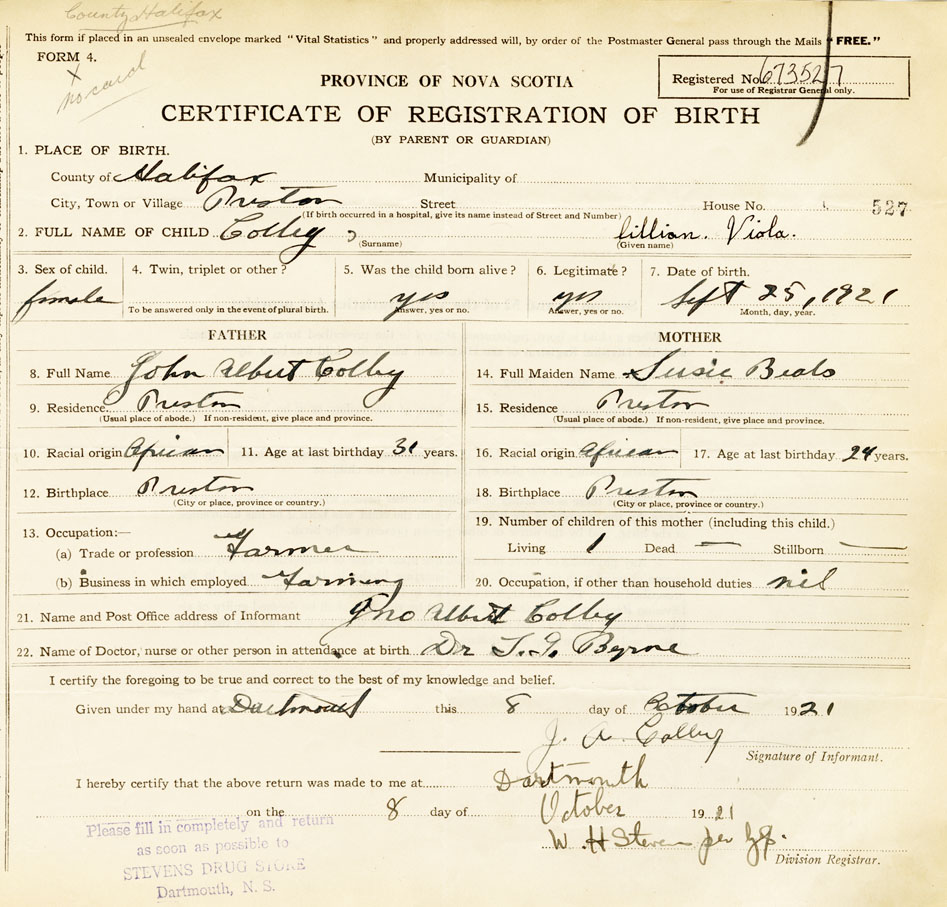 County Halifax
This form if placed in an unsealed envelope marked "Vital Statistics" and properly addressed will, by order of the Postmaster General pass through the Mails "FREE."
FORM 4.
X
no card
PROVINCE OF NOVA SCOTIA
Registered No. 673527
For use of Registrar General only.
CERTIFICATE OF REGISTRATION OF BIRTH
(BY PARENT OR GUARDIAN)
1. PLACE OF BIRTH.
County of Halifax Municipality of
City, Town or Village Preston Street House No. 527
(If birth occurred in a hospital, give its name instead of Street and Number)
2. FULL NAME OF CHILD Colley Lillian. Viola.
(Surname) (Given name)
3. Sex of child. 4. Twin, triplet or other? 5. Was the child born alive? 6. Legitimate? 7. Date of birth.
female yes yes Sept 25, 1921
To be answered only in the event of plural birth. Answer, yes or no. Answer, yes or no. Month, day, year.
FATHER MOTHER
8. Full Name John Albert Colley 14. Full Maiden Name Susie Beals
9. Residence Preston 15. Residence Preston
(Usual place of abode.) If non-resident, give place and province. (Usual place of abode.) If non-resident, give place and province.
10. Racial origin African 11. Age at last birthday 31 years. 16. Racial origin African 17. Age at last birthday 24 years.
12. Birthplace Preston 18. Birthplace Preston
(City or place, province or country.) (City or place, province or country.)
13. Occupation:— 19. Number of children of this mother (including this child.)
(a) Trade or profession Farmer Living 1 Dead — Stillborn —
(b) Business in which employed Farming 20. Occupation, if other than household duties nil
21. Name and Post Office address of Informant Jno Albert Colley
22. Name of Doctor, nurse or other person in attendance at birth Dr T. G. Byrne
I certify the foregoing to be true and correct to the best of my knowledge and belief.
Given under my hand at Dartmouth this 8 day of October 1921
J. A. Colley
Signature of Informant.
I hereby certify that the above return was made to me at Dartmouth
on the 8 day of October 1921
W. H Stevens per
Division Registrar.
Please fill in completely and return
as soon as possible to
STEVENS DRUG STORE
Dartmouth, N. S.